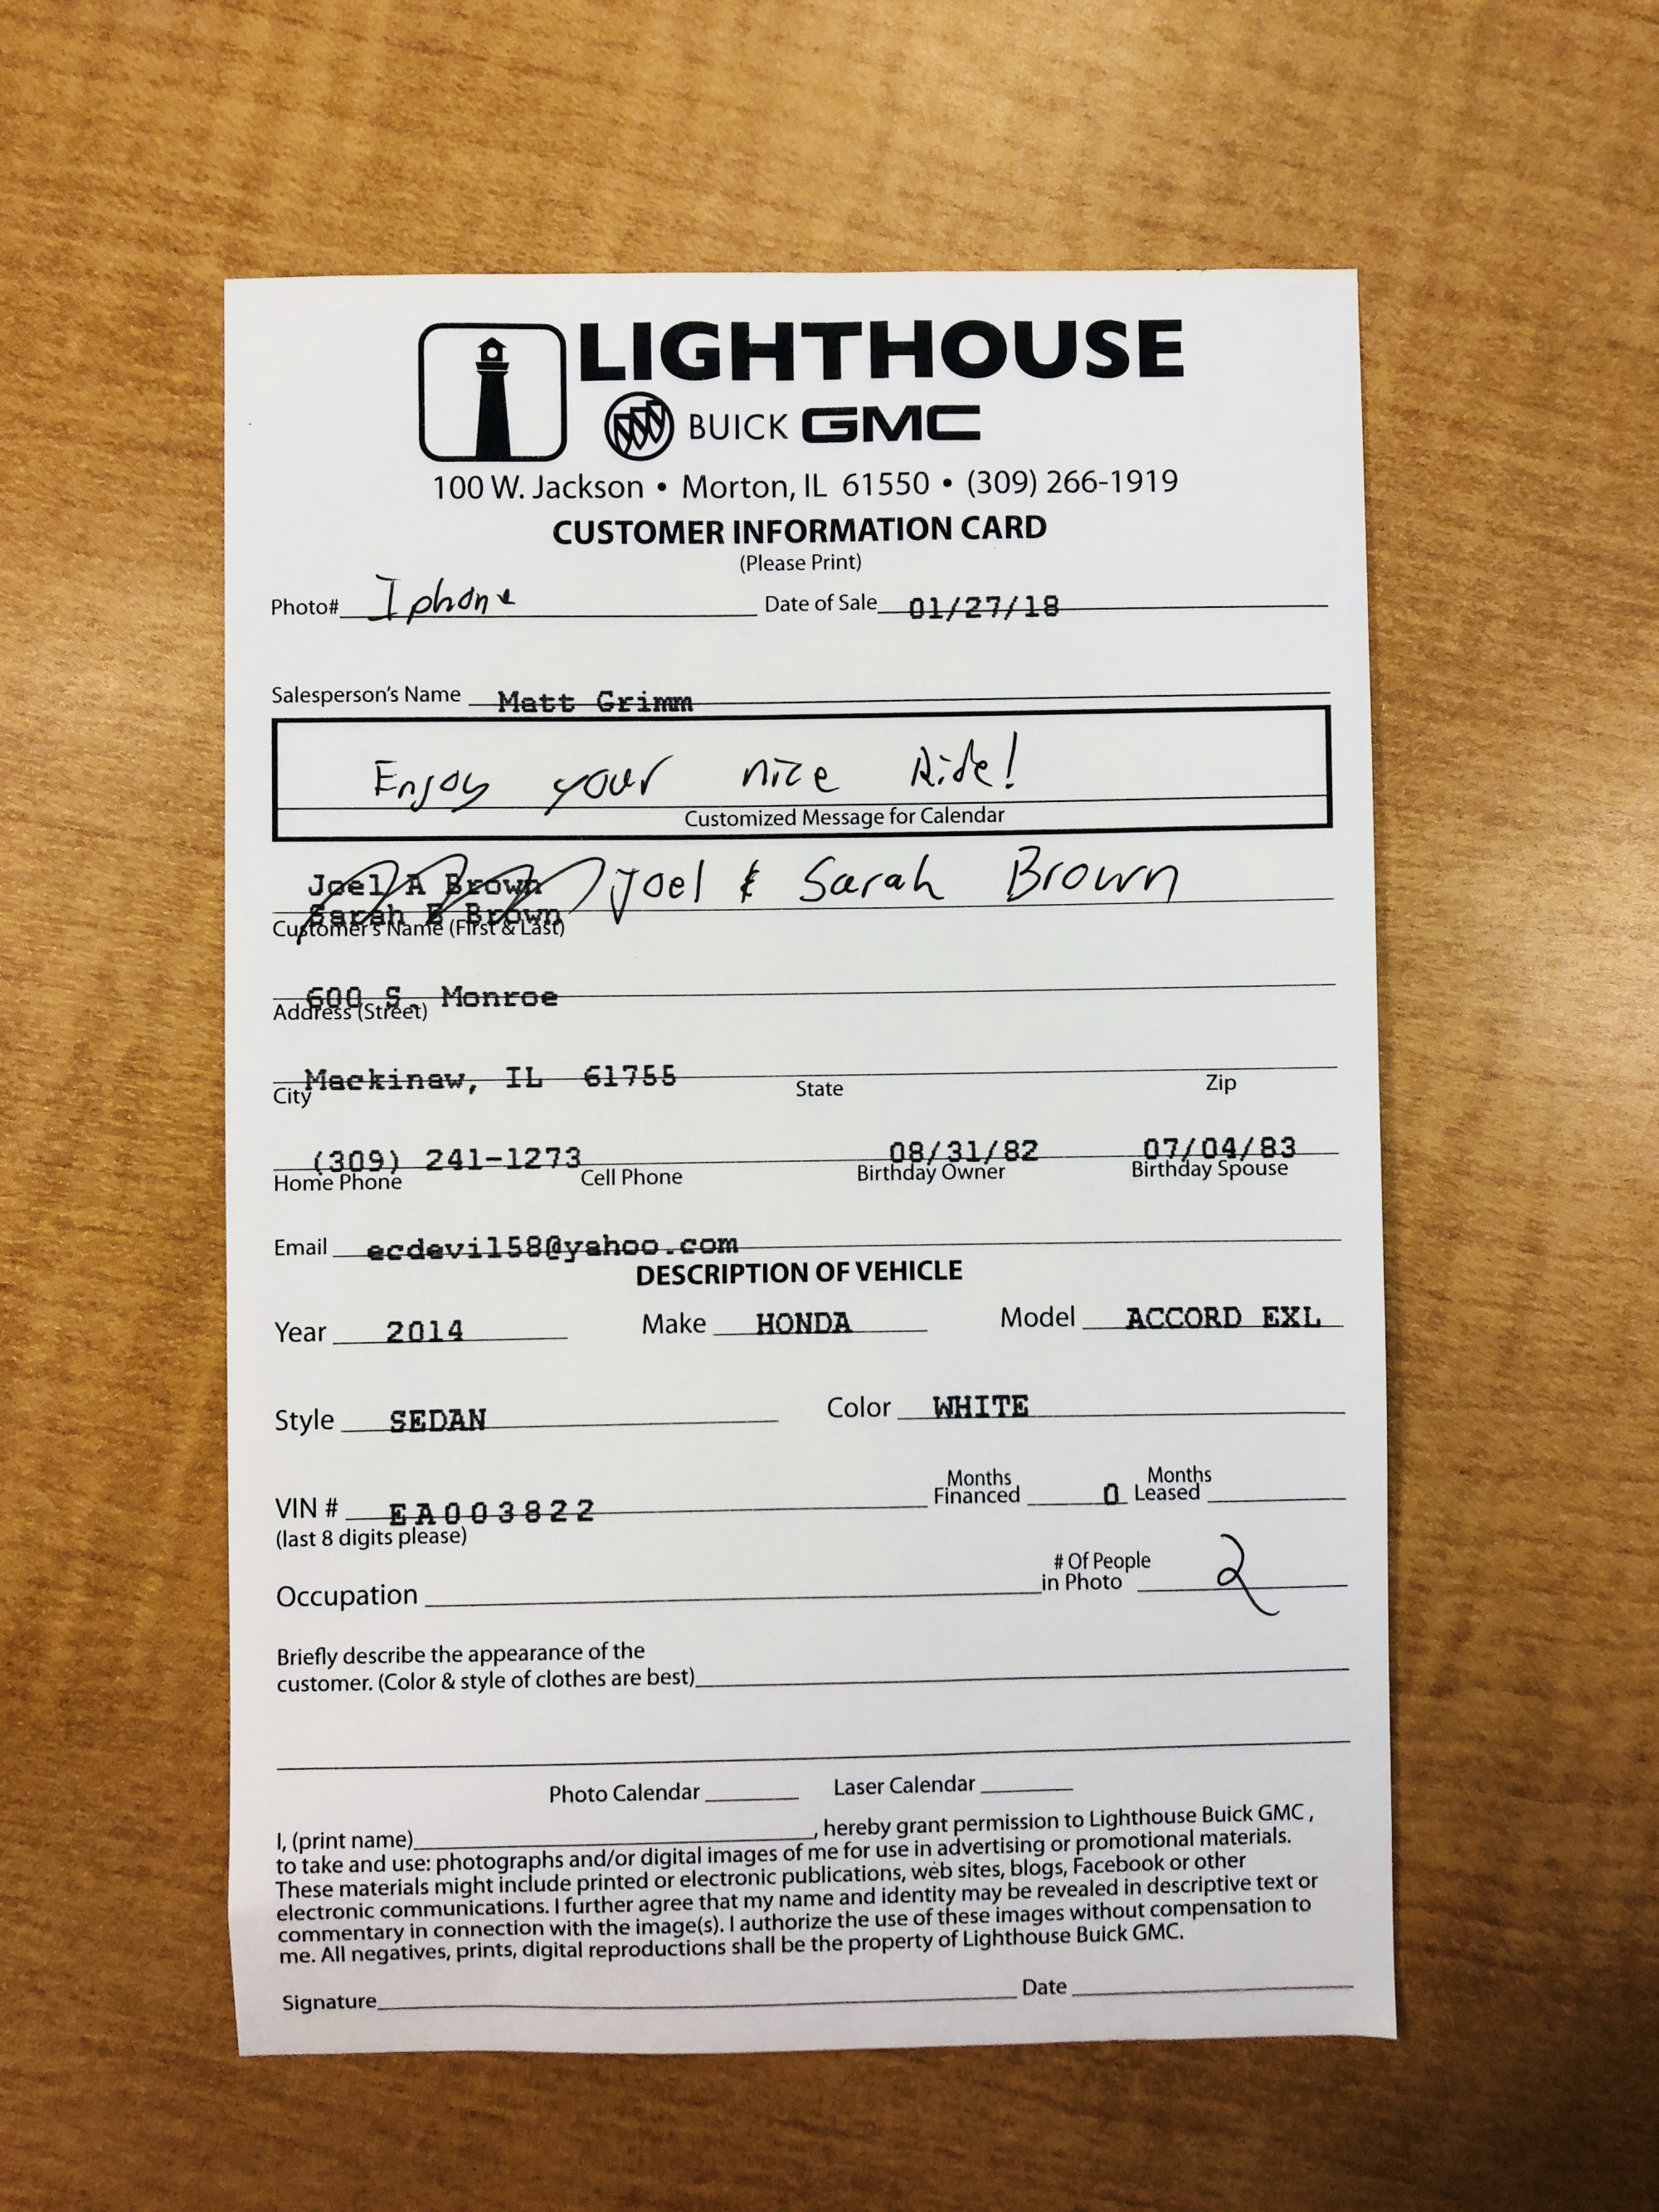 LIGHTHOUSE
BUICK GMC
100 W. Jackson • Morton, IL 61550 • (309) 266-1919
CUSTOMER INFORMATION CARD
(Please Print)
Photo# Iphone Date of Sale 01/27/18
Salesperson's Name Matt Grimm
Enjoy your nice Ride!
Customized Message for Calendar
Joel A Brown Joel & Sarah Brown
Sarah E Brown
Customer's Name (First & Last)
600 S. Monroe
Address (Street)
Mackinaw, IL 61755
City State Zip
(309) 241-1273 08/31/82 07/04/83
Home Phone Cell Phone Birthday Owner Birthday Spouse
Email ecdevil58@yahoo.com
DESCRIPTION OF VEHICLE
Year 2014 Make HONDA Model ACCORD EXL
Style SEDAN Color WHITE
VIN # EA003822 Months Financed 0 Months Leased
(last 8 digits please)
Occupation # Of People in Photo 2
Briefly describe the appearance of the
customer. (Color & style of clothes are best)
Photo Calendar Laser Calendar
I, (print name) , hereby grant permission to Lighthouse Buick GMC ,
to take and use: photographs and/or digital images of me for use in advertising or promotional materials.
These materials might include printed or electronic publications, web sites, blogs, Facebook or other
electronic communications. I further agree that my name and identity may be revealed in descriptive text or
commentary in connection with the image(s). I authorize the use of these images without compensation to
me. All negatives, prints, digital reproductions shall be the property of Lighthouse Buick GMC.
Signature Date